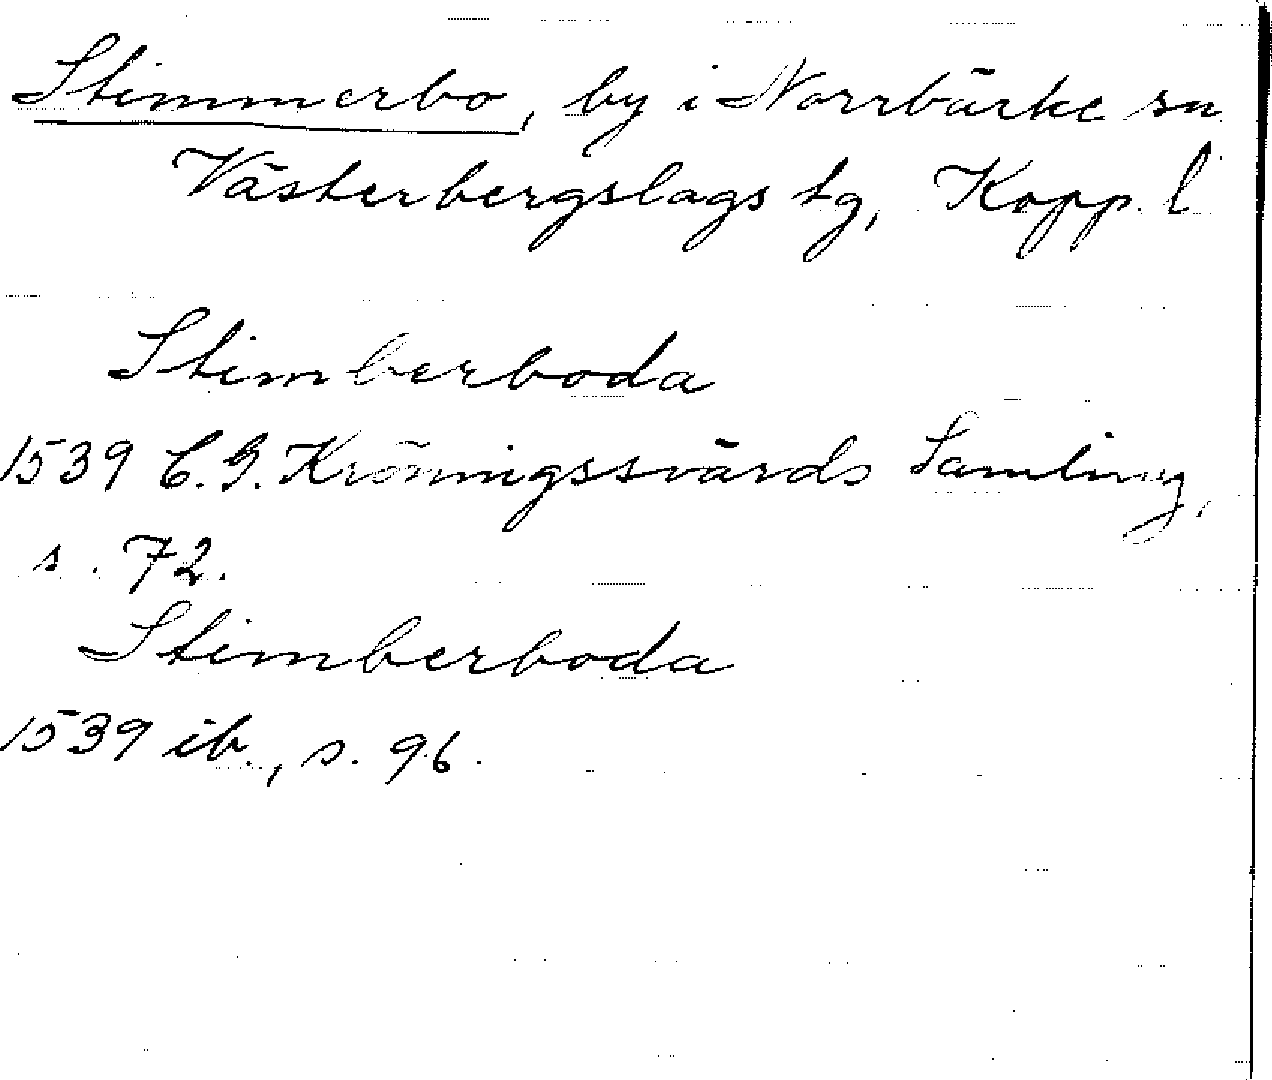 Stimmerbo, by i Norrbärke sn
Västerbergslags tg, Kopp. l
Stimberboda
1539 C.G. Kröningssvärds Samling,
s. 72.
Stimberboda
1539 ib., s. 96.